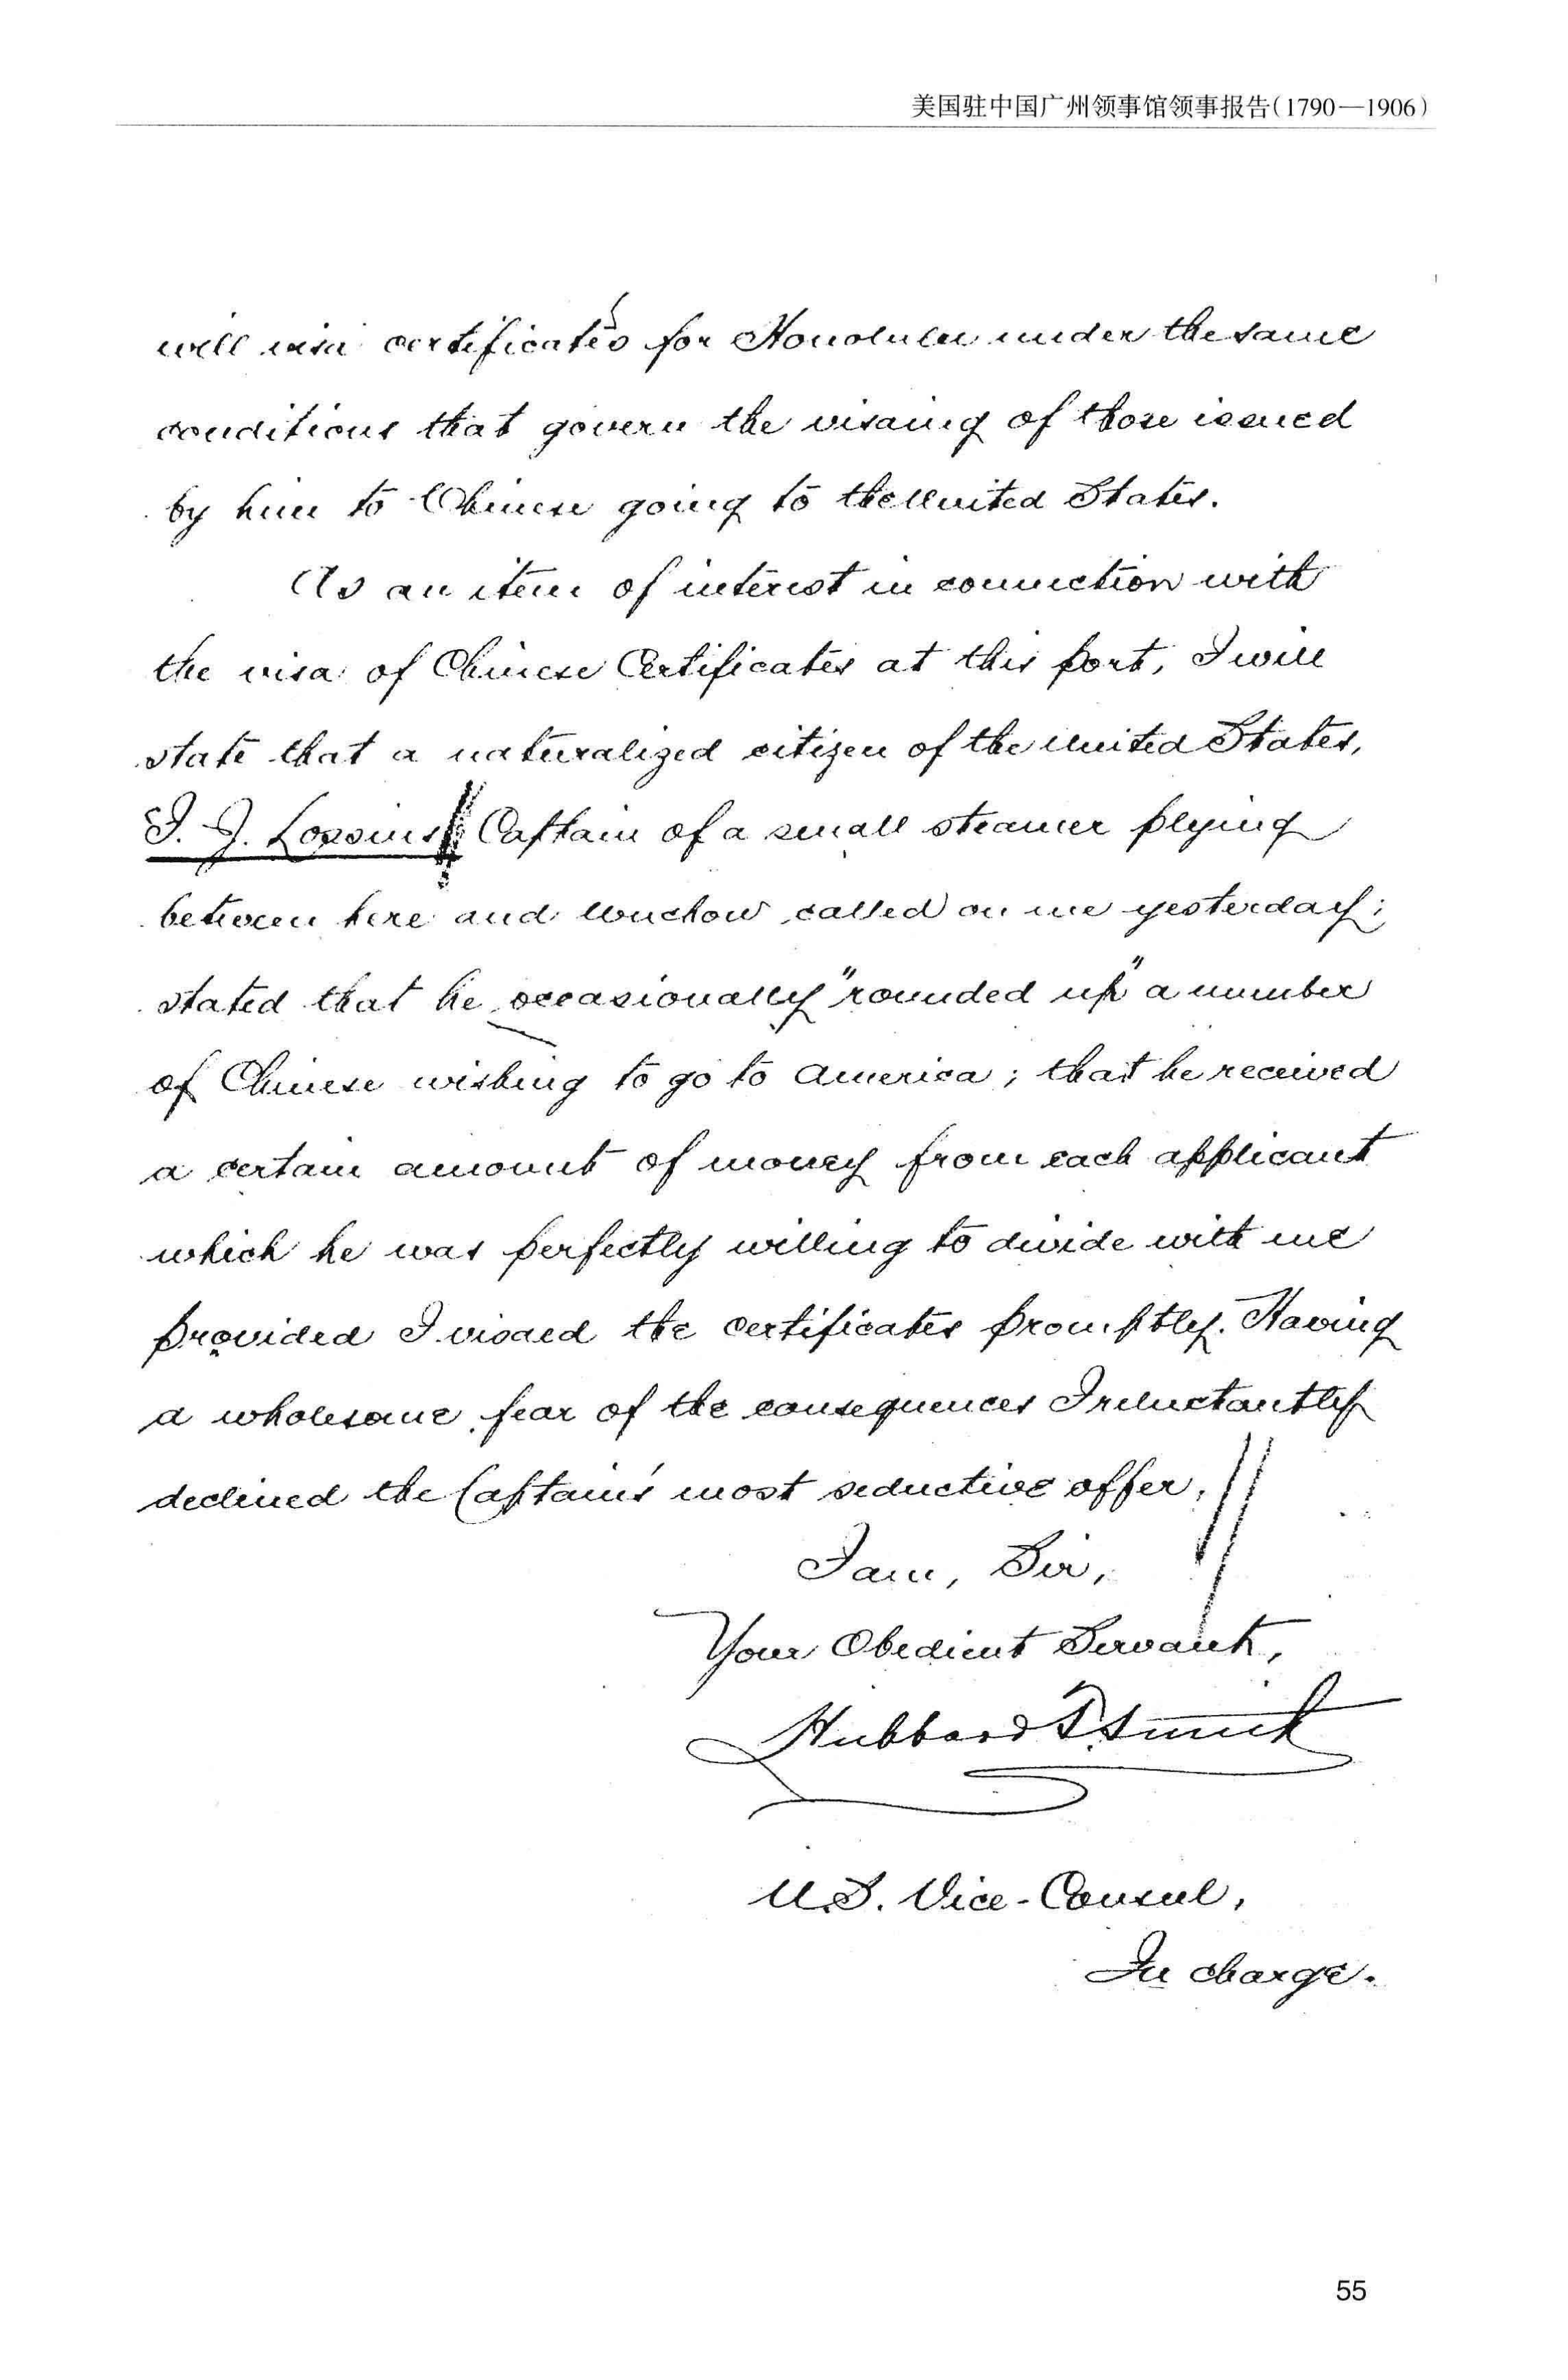 美国驻中国广州领事馆领事报告(1790—1906)
will visa certificates for Honolulu under the same
conditions that govern the visaing of those issued
by him to Chinese going to the United States.
As an item of interest in connection with
the visa of Chinese Certificates at this port, I will
state that a naturalized citizen of the United States,
Captain of a small steamer plying
between here and Wuchow called on me yesterday;
stated that he occasionally "rounded up" a number
of Chinese wishing to go to America; that he received
a certain amount of money from each applicant
which he was perfectly willing to divide with me
provided I visaed the certificates promptly. Having
a wholesome fear of the consequences I reluctantly
declined the Captain's most seductive offer.
I am, Sir,
Your Obedient Servant,
Hubbard T. Smith
U.S. Vice-Consul,
In charge.
55